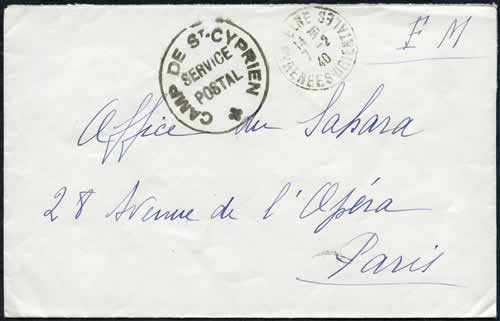 CAMP DE ST-CYPRIEN
SERVICE
POSTAL
ELNE
PYRENEES ORIENTALES
40
F M
Office du Sahara
28 Avenue de l'Opéra
Paris